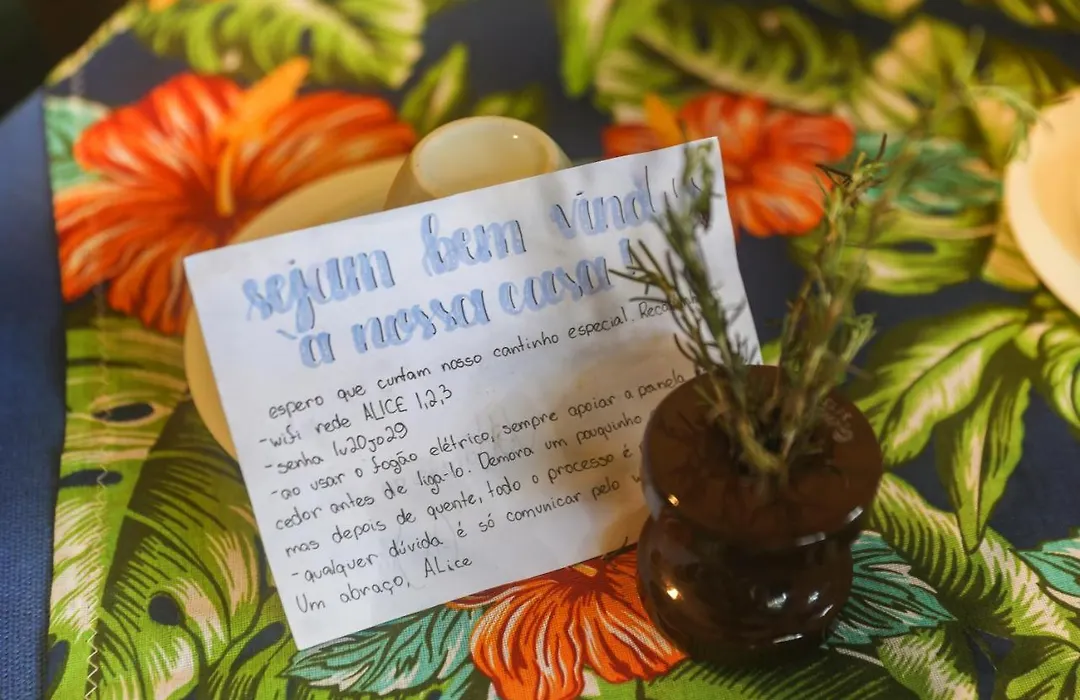 sejam bem
à nossa casa!
espero que curtam nosso cantinho especial.
-wifi rede ALICE 1,2,3
-senha lu20jo29
-ao usar o fogão elétrico, sempre apoiar a panela
cedor antes de liga-lo. Demora um pouquinho
mas depois de quente, todo o processo é
-qualquer dúvida é só comunicar pelo
Um abraço, ALice